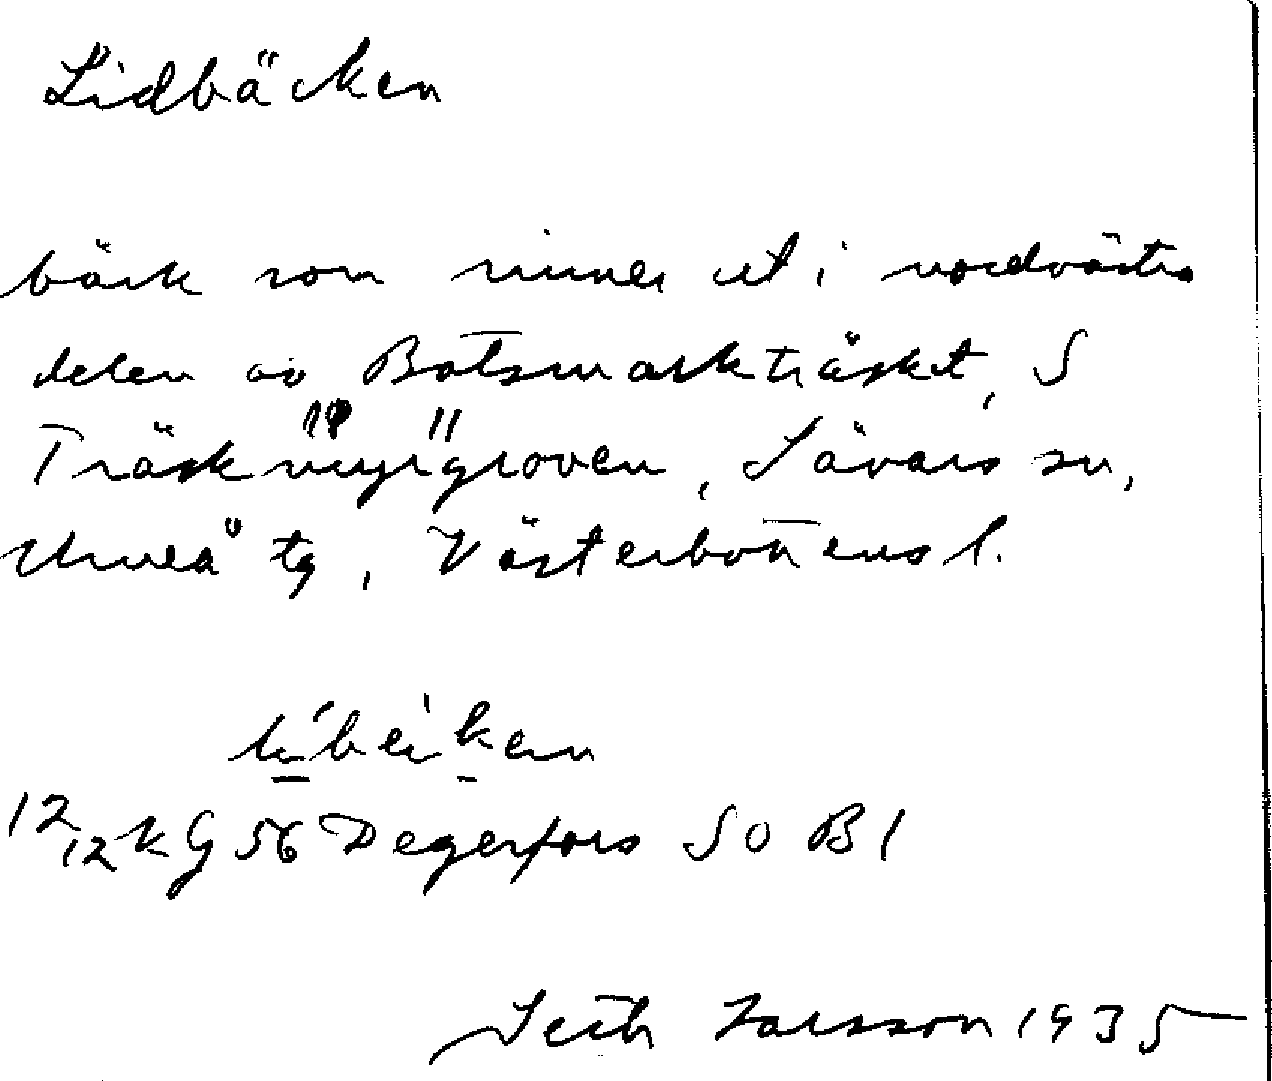 Lidbäcken
bäck som rinner ut i nordvästra
delen av Botsmarkträsket, S
Träskmyrgroven, Sävars sn,
Umeå tg, Västerbottens l.
12/12 k G 56 Degerfors SO B1
Seth Larsson 1935